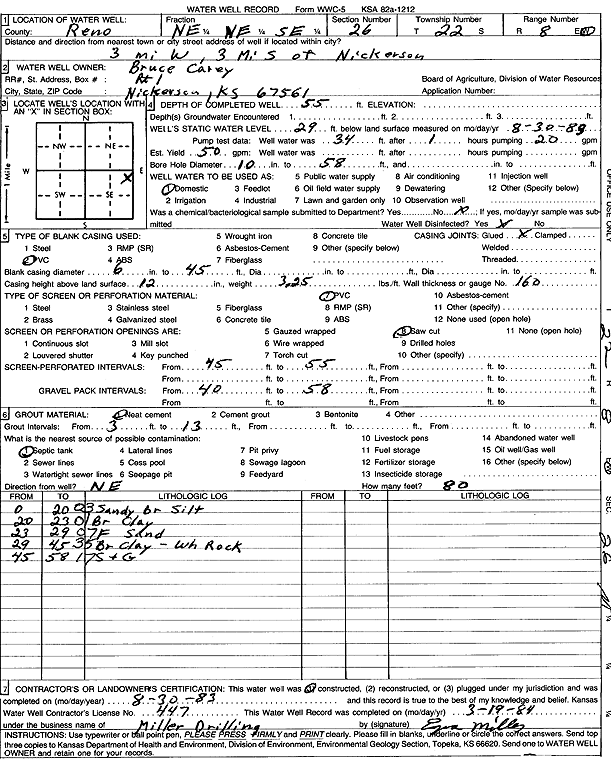 WATER WELL RECORD Form WWC-5 KSA 82a-1212
1 LOCATION OF WATER WELL: Fraction Section Number Township Number Range Number
County: Reno NE ¼ NE ¼ SE ¼ 26 T 22 S R 8 E/W
Distance and direction from nearest town or city street address of well if located within city?
3 mi W, 3 Mi S of Nickerson
2 WATER WELL OWNER: Bruce Carey
RR#, St. Address, Box # : Rt 1 Board of Agriculture, Division of Water Resources
City, State, ZIP Code : Nickerson, KS 67561 Application Number:
3 LOCATE WELL'S LOCATION WITH AN "X" IN SECTION BOX:
N
NW NE
W E
X
SW SE
S
1 Mile
4 DEPTH OF COMPLETED WELL 55 ft. ELEVATION:
Depth(s) Groundwater Encountered 1. ft. 2. ft. 3. ft.
WELL'S STATIC WATER LEVEL 29 ft. below land surface measured on mo/day/yr 8-30-83
Pump test data: Well water was 34 ft. after 1 hours pumping 20 gpm
Est. Yield 50 gpm: Well water was ft. after hours pumping gpm
Bore Hole Diameter 10 in. to 58 ft., and in. to ft.
WELL WATER TO BE USED AS: 5 Public water supply 8 Air conditioning 11 Injection well
1 Domestic 3 Feedlot 6 Oil field water supply 9 Dewatering 12 Other (Specify below)
2 Irrigation 4 Industrial 7 Lawn and garden only 10 Observation well
Was a chemical/bacteriological sample submitted to Department? Yes No X; If yes, mo/day/yr sample was sub-
mitted Water Well Disinfected? Yes X No
5 TYPE OF BLANK CASING USED: 5 Wrought iron 8 Concrete tile CASING JOINTS: Glued X Clamped
1 Steel 3 RMP (SR) 6 Asbestos-Cement 9 Other (specify below) Welded
2 PVC 4 ABS 7 Fiberglass Threaded
Blank casing diameter 6 in. to 45 ft., Dia in. to ft., Dia in. to ft.
Casing height above land surface 12 in., weight 3.25 lbs./ft. Wall thickness or gauge No. 160
TYPE OF SCREEN OR PERFORATION MATERIAL: 7 PVC 10 Asbestos-cement
1 Steel 3 Stainless steel 5 Fiberglass 8 RMP (SR) 11 Other (specify)
2 Brass 4 Galvanized steel 6 Concrete tile 9 ABS 12 None used (open hole)
SCREEN OR PERFORATION OPENINGS ARE: 5 Gauzed wrapped 8 Saw cut 11 None (open hole)
1 Continuous slot 3 Mill slot 6 Wire wrapped 9 Drilled holes
2 Louvered shutter 4 Key punched 7 Torch cut 10 Other (specify)
SCREEN-PERFORATED INTERVALS: From 45 ft. to 55 ft., From ft. to ft.
From ft. to ft., From ft. to ft.
GRAVEL PACK INTERVALS: From 40 ft. to 58 ft., From ft. to ft.
From ft. to ft., From ft. to ft.
6 GROUT MATERIAL: 1 Neat cement 2 Cement grout 3 Bentonite 4 Other
Grout Intervals: From 3 ft. to 13 ft., From ft. to ft., From ft. to ft.
What is the nearest source of possible contamination: 10 Livestock pens 14 Abandoned water well
1 Septic tank 4 Lateral lines 7 Pit privy 11 Fuel storage 15 Oil well/Gas well
2 Sewer lines 5 Cess pool 8 Sewage lagoon 12 Fertilizer storage 16 Other (specify below)
3 Watertight sewer lines 6 Seepage pit 9 Feedyard 13 Insecticide storage
Direction from well? NE How many feet? 80
FROM TO LITHOLOGIC LOG FROM TO LITHOLOGIC LOG
0 20 03 Sandy Br Silt
20 23 01 Br Clay
23 29 07 F Sand
29 45 35 Br Clay - Wh Rock
45 58 17 S + G
7 CONTRACTOR'S OR LANDOWNER'S CERTIFICATION: This water well was (1) constructed, (2) reconstructed, or (3) plugged under my jurisdiction and was
completed on (mo/day/year) 8-30-83 and this record is true to the best of my knowledge and belief. Kansas
Water Well Contractor's License No. 447 This Water Well Record was completed on (mo/day/yr) 3-19-84
under the business name of Miller Drilling by (signature) Miller
INSTRUCTIONS: Use typewriter or ball point pen, PLEASE PRESS FIRMLY and PRINT clearly. Please fill in blanks, underline or circle the correct answers. Send top
three copies to Kansas Department of Health and Environment, Division of Environment, Environmental Geology Section, Topeka, KS 66620. Send one to WATER WELL
OWNER and retain one for your records.
OFFICE USE ONLY
T
22
R
8
EW
SEC.
26